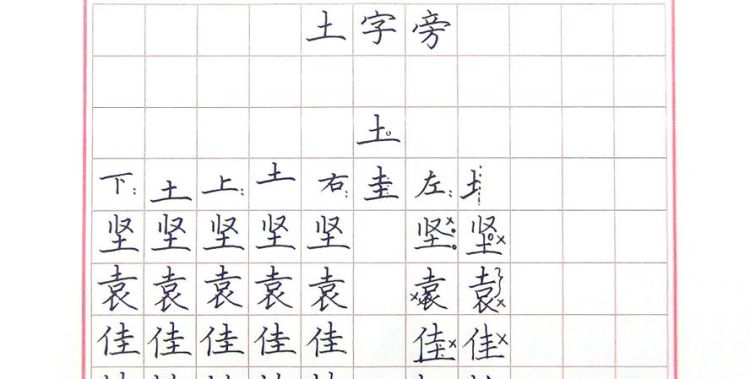 土字旁
土
下: 土 上: 土 右: 圭 左: 土
坚 坚 坚 坚 坚 坚 坚
袁 袁 袁 袁 袁 袁 袁
佳 佳 佳 佳 佳 佳 佳